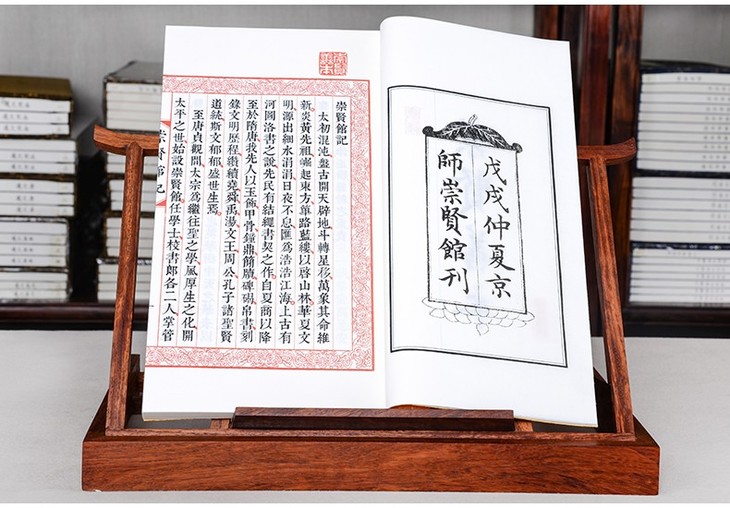 戊戌仲夏京
師崇賢館刊
崇賢館記
太初混沌盤古開天辟地斗轉星移萬象其命維
新炎黃先祖崛起東方篳路藍縷以啓山林華夏文
明源出細水涓涓日夜不息匯爲浩浩江海上古有
河圖洛書之說先民有結繩書契之作自夏商以降
至於隋唐我先人以玉佩甲骨鐘鼎簡牘碑碣帛書刻
錄文明歷程纘續堯舜禹湯文王周公孔子諸聖賢
道統斯文郁郁盛世生焉
至唐貞觀間太宗爲繼往聖之學風厚生之化開
太平之世始設崇賢館任學士校書郎各二人掌管
崇賢館記